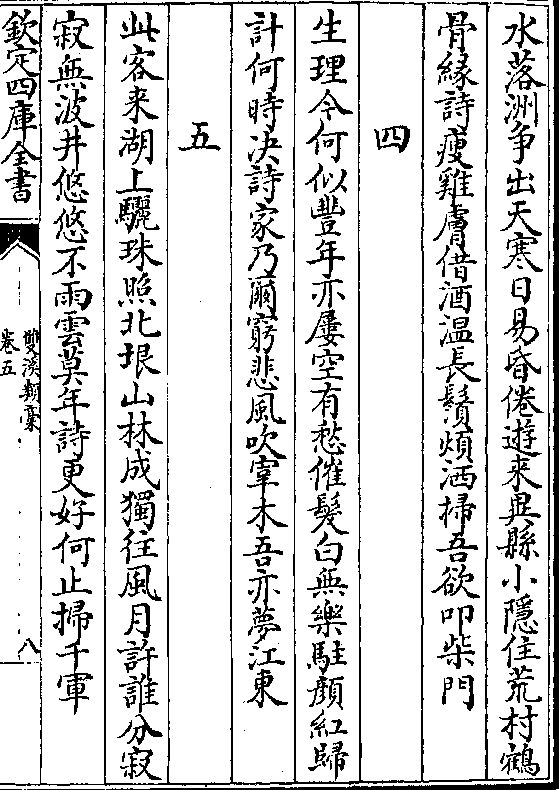 水落洲争出天寒日易昏倦遊来異縣小隱住荒村鶴
骨緣詩瘦雞膚借酒温長鬚煩洒掃吾欲叩柴門
四
生理今何似豐年亦屢空有愁催髮白無樂駐顔紅歸
計何時决詩家乃爾窮悲風吹宰木吾亦夢江東
五
此客来湖上驪珠照北垠山林成獨往風月許誰分寂
寂無波井悠悠不雨雲莫年詩更好何止掃千軍
欽定四庫全書
雙溪類稾
卷五
八